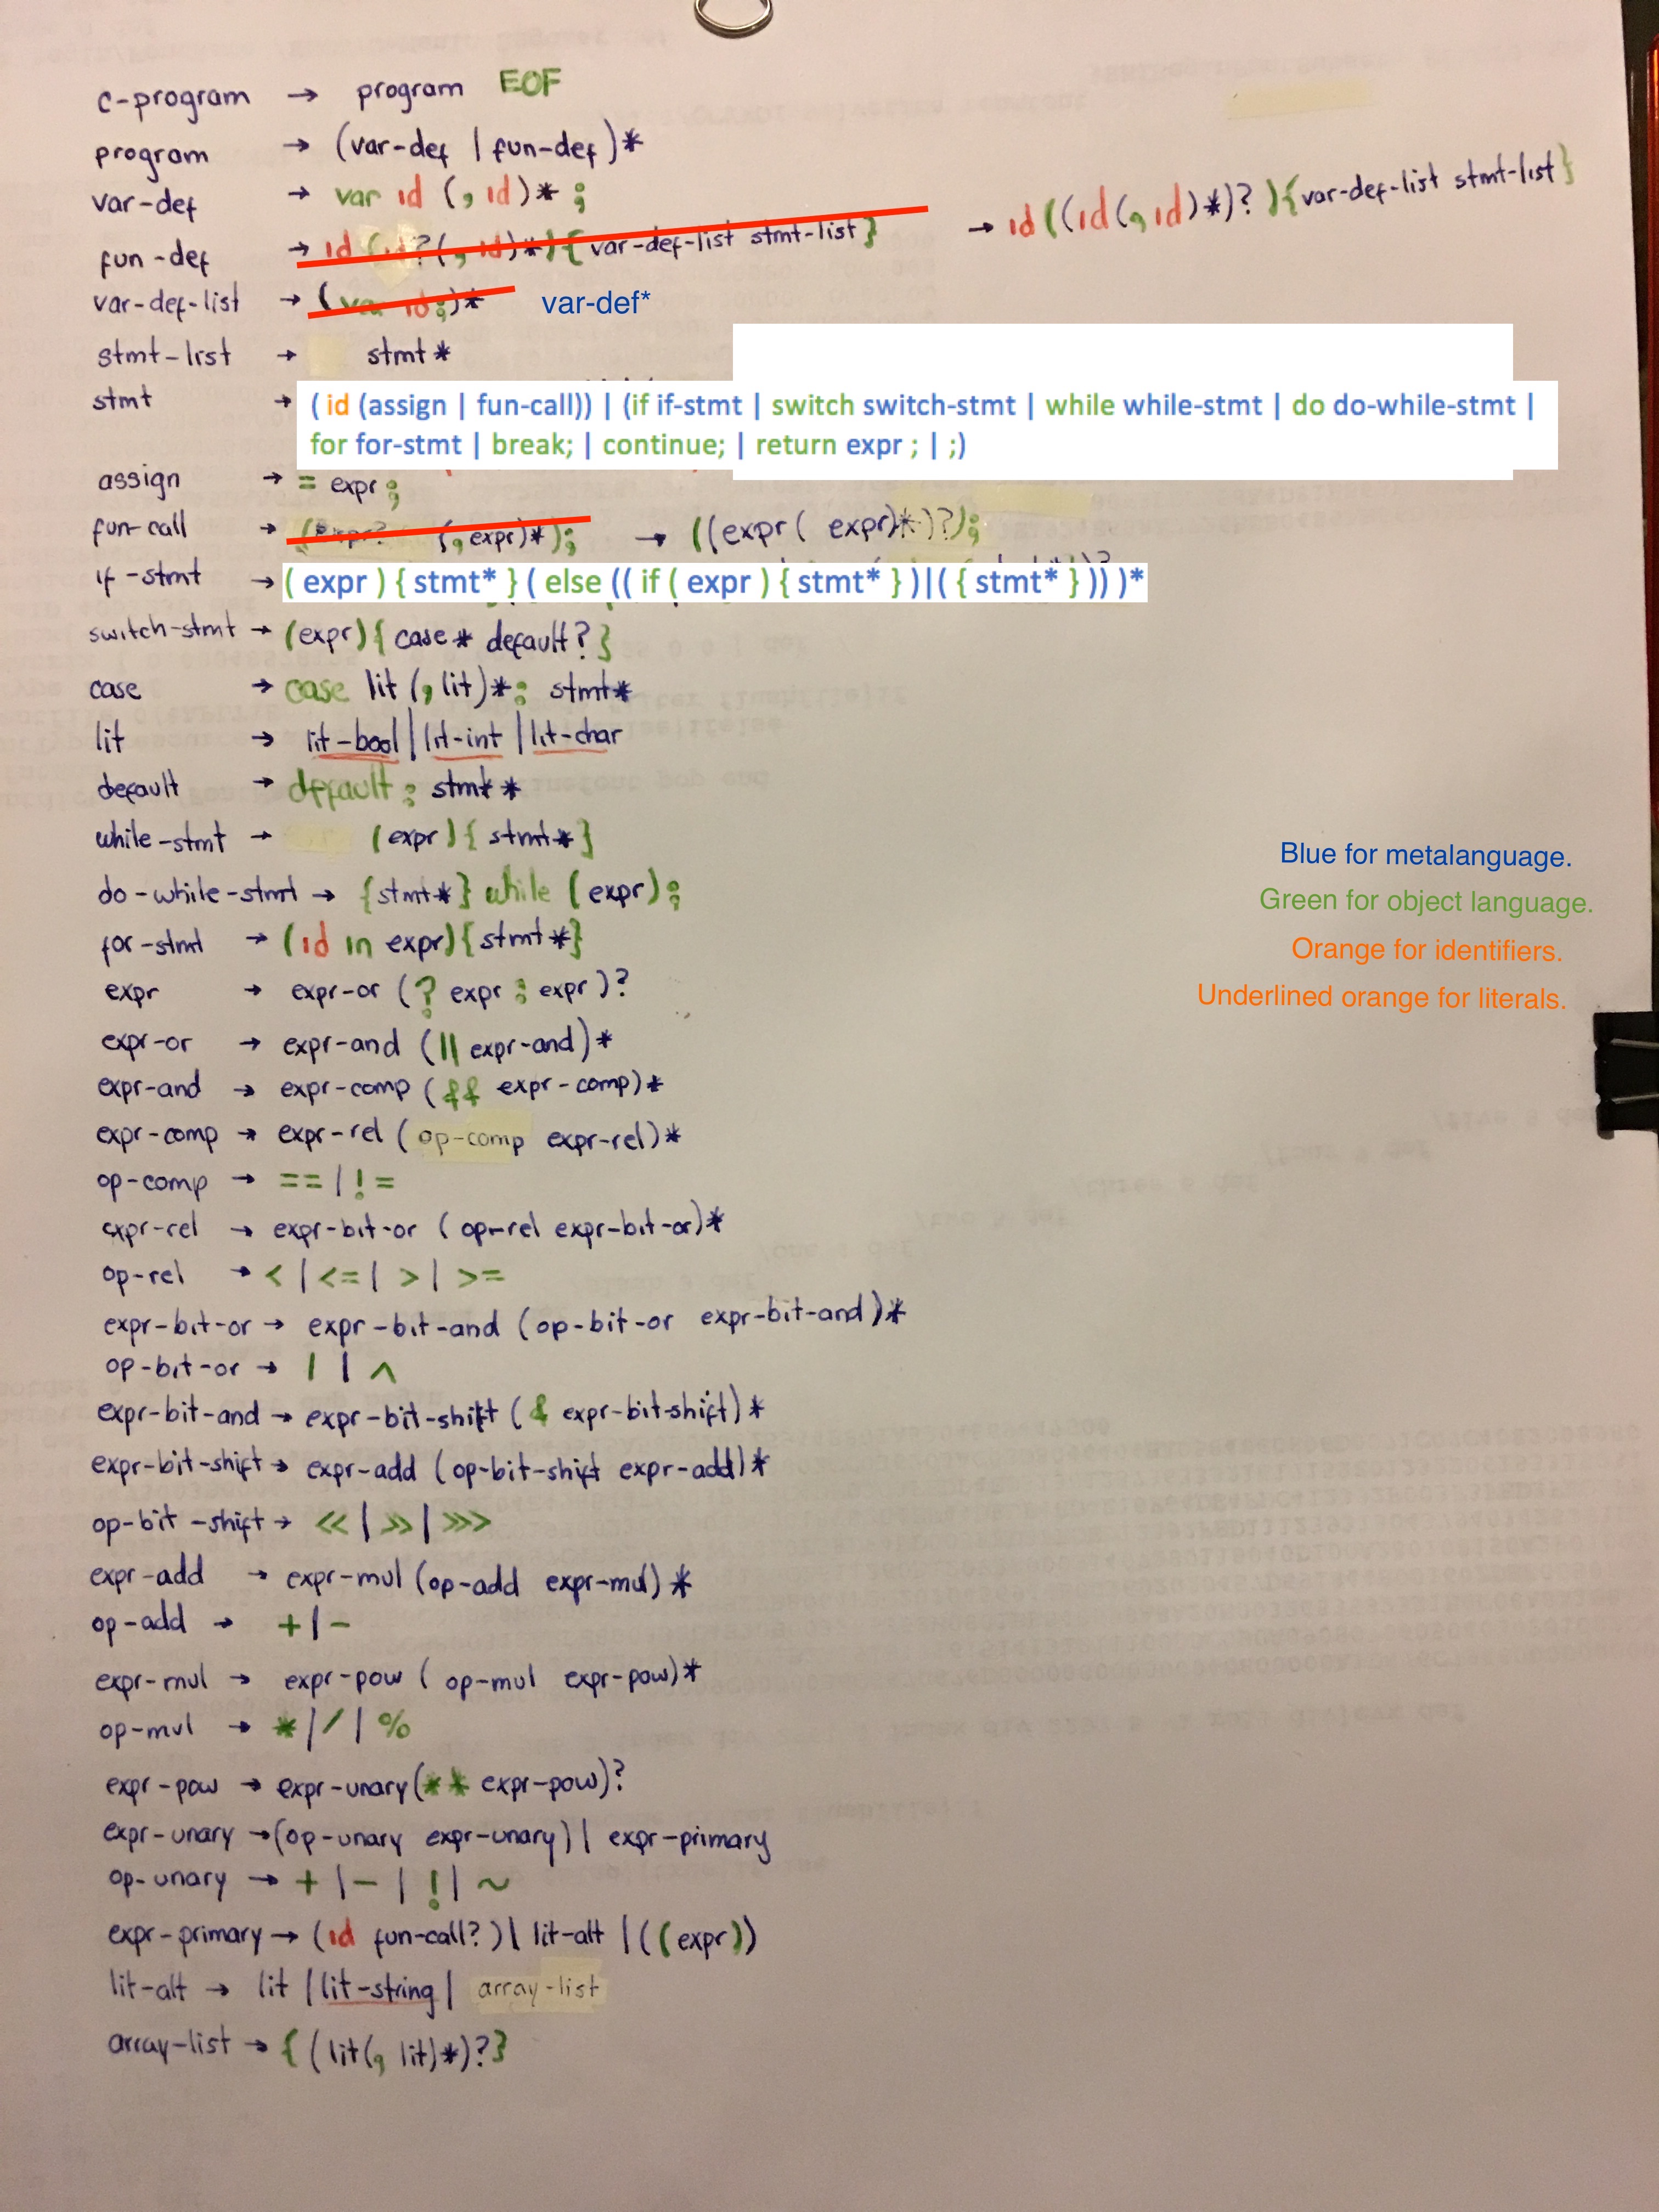 c-program → program EOF
program → (var-def | fun-def)*
var-def → var id (, id)* ;
fun-def → id (id?(, id)*){ var-def-list stmt-list} → id((id(, id)*)? ){var-def-list stmt-list}
var-def-list → (var id;)* var-def*
stmt-list → stmt*
stmt → ( id (assign | fun-call)) | (if if-stmt | switch switch-stmt | while while-stmt | do do-while-stmt |
for for-stmt | break; | continue; | return expr ; | ;)
assign → = expr;
fun-call → (expr? (, expr)*); → ((expr( expr)*)?);
if-stmt → ( expr ) { stmt* } ( else (( if ( expr ) { stmt* } )|( { stmt* } )) )*
switch-stmt → (expr){ case* default? }
case → case lit (, lit)*: stmt*
lit → lit-bool | lit-int | lit-char
default → default : stmt*
while-stmt → (expr){ stmt* }
Blue for metalanguage.
do-while-stmt → {stmt*} while (expr);
Green for object language.
for-stmt → (id in expr){stmt*}
Orange for identifiers.
expr → expr-or (? expr : expr)?
Underlined orange for literals.
expr-or → expr-and (|| expr-and)*
expr-and → expr-comp (&& expr-comp)*
expr-comp → expr-rel (op-comp expr-rel)*
op-comp → == | !=
expr-rel → expr-bit-or (op-rel expr-bit-or)*
op-rel → < | <= | > | >=
expr-bit-or → expr-bit-and (op-bit-or expr-bit-and)*
op-bit-or → | | ^
expr-bit-and → expr-bit-shift (& expr-bit-shift)*
expr-bit-shift → expr-add (op-bit-shift expr-add)*
op-bit-shift → << | >> | >>>
expr-add → expr-mul (op-add expr-mul)*
op-add → + | -
expr-mul → expr-pow (op-mul expr-pow)*
op-mul → * | / | %
expr-pow → expr-unary(** expr-pow)?
expr-unary → (op-unary expr-unary) | expr-primary
op-unary → + | - | ! | ~
expr-primary → (id fun-call?) | lit-alt | ((expr))
lit-alt → lit | lit-string | array-list
array-list → { (lit(, lit)*)?}